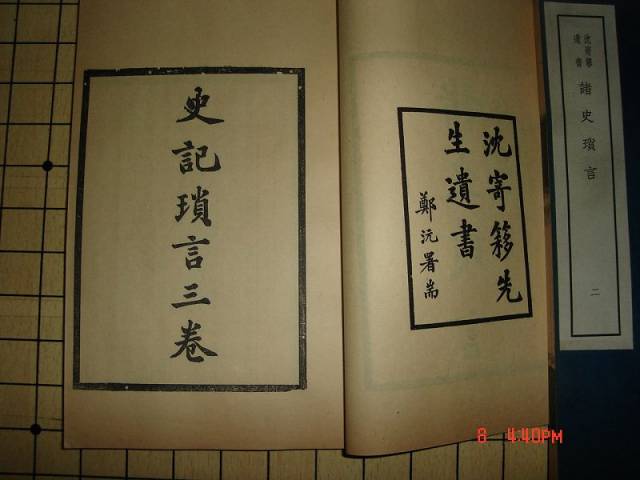 沈寄簃
遺書
諸史瑣言
二
沈寄簃先
生遺書
鄭沅署耑
史記瑣言三卷
8 4:40PM